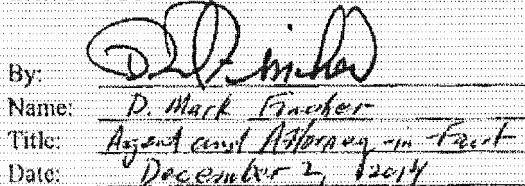 By:
Name: D. Mark Fincher
Title: Agent and Attorney-in-Fact
Date: December 2, 2014